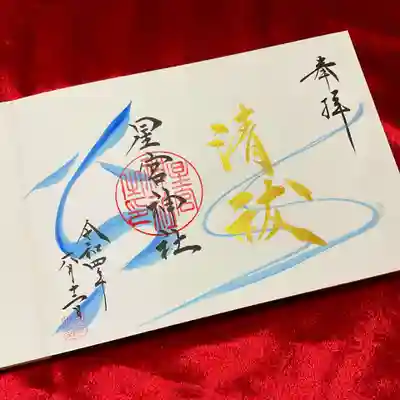 奉拝
清祓
星宮神社
令和四年
六月十二日